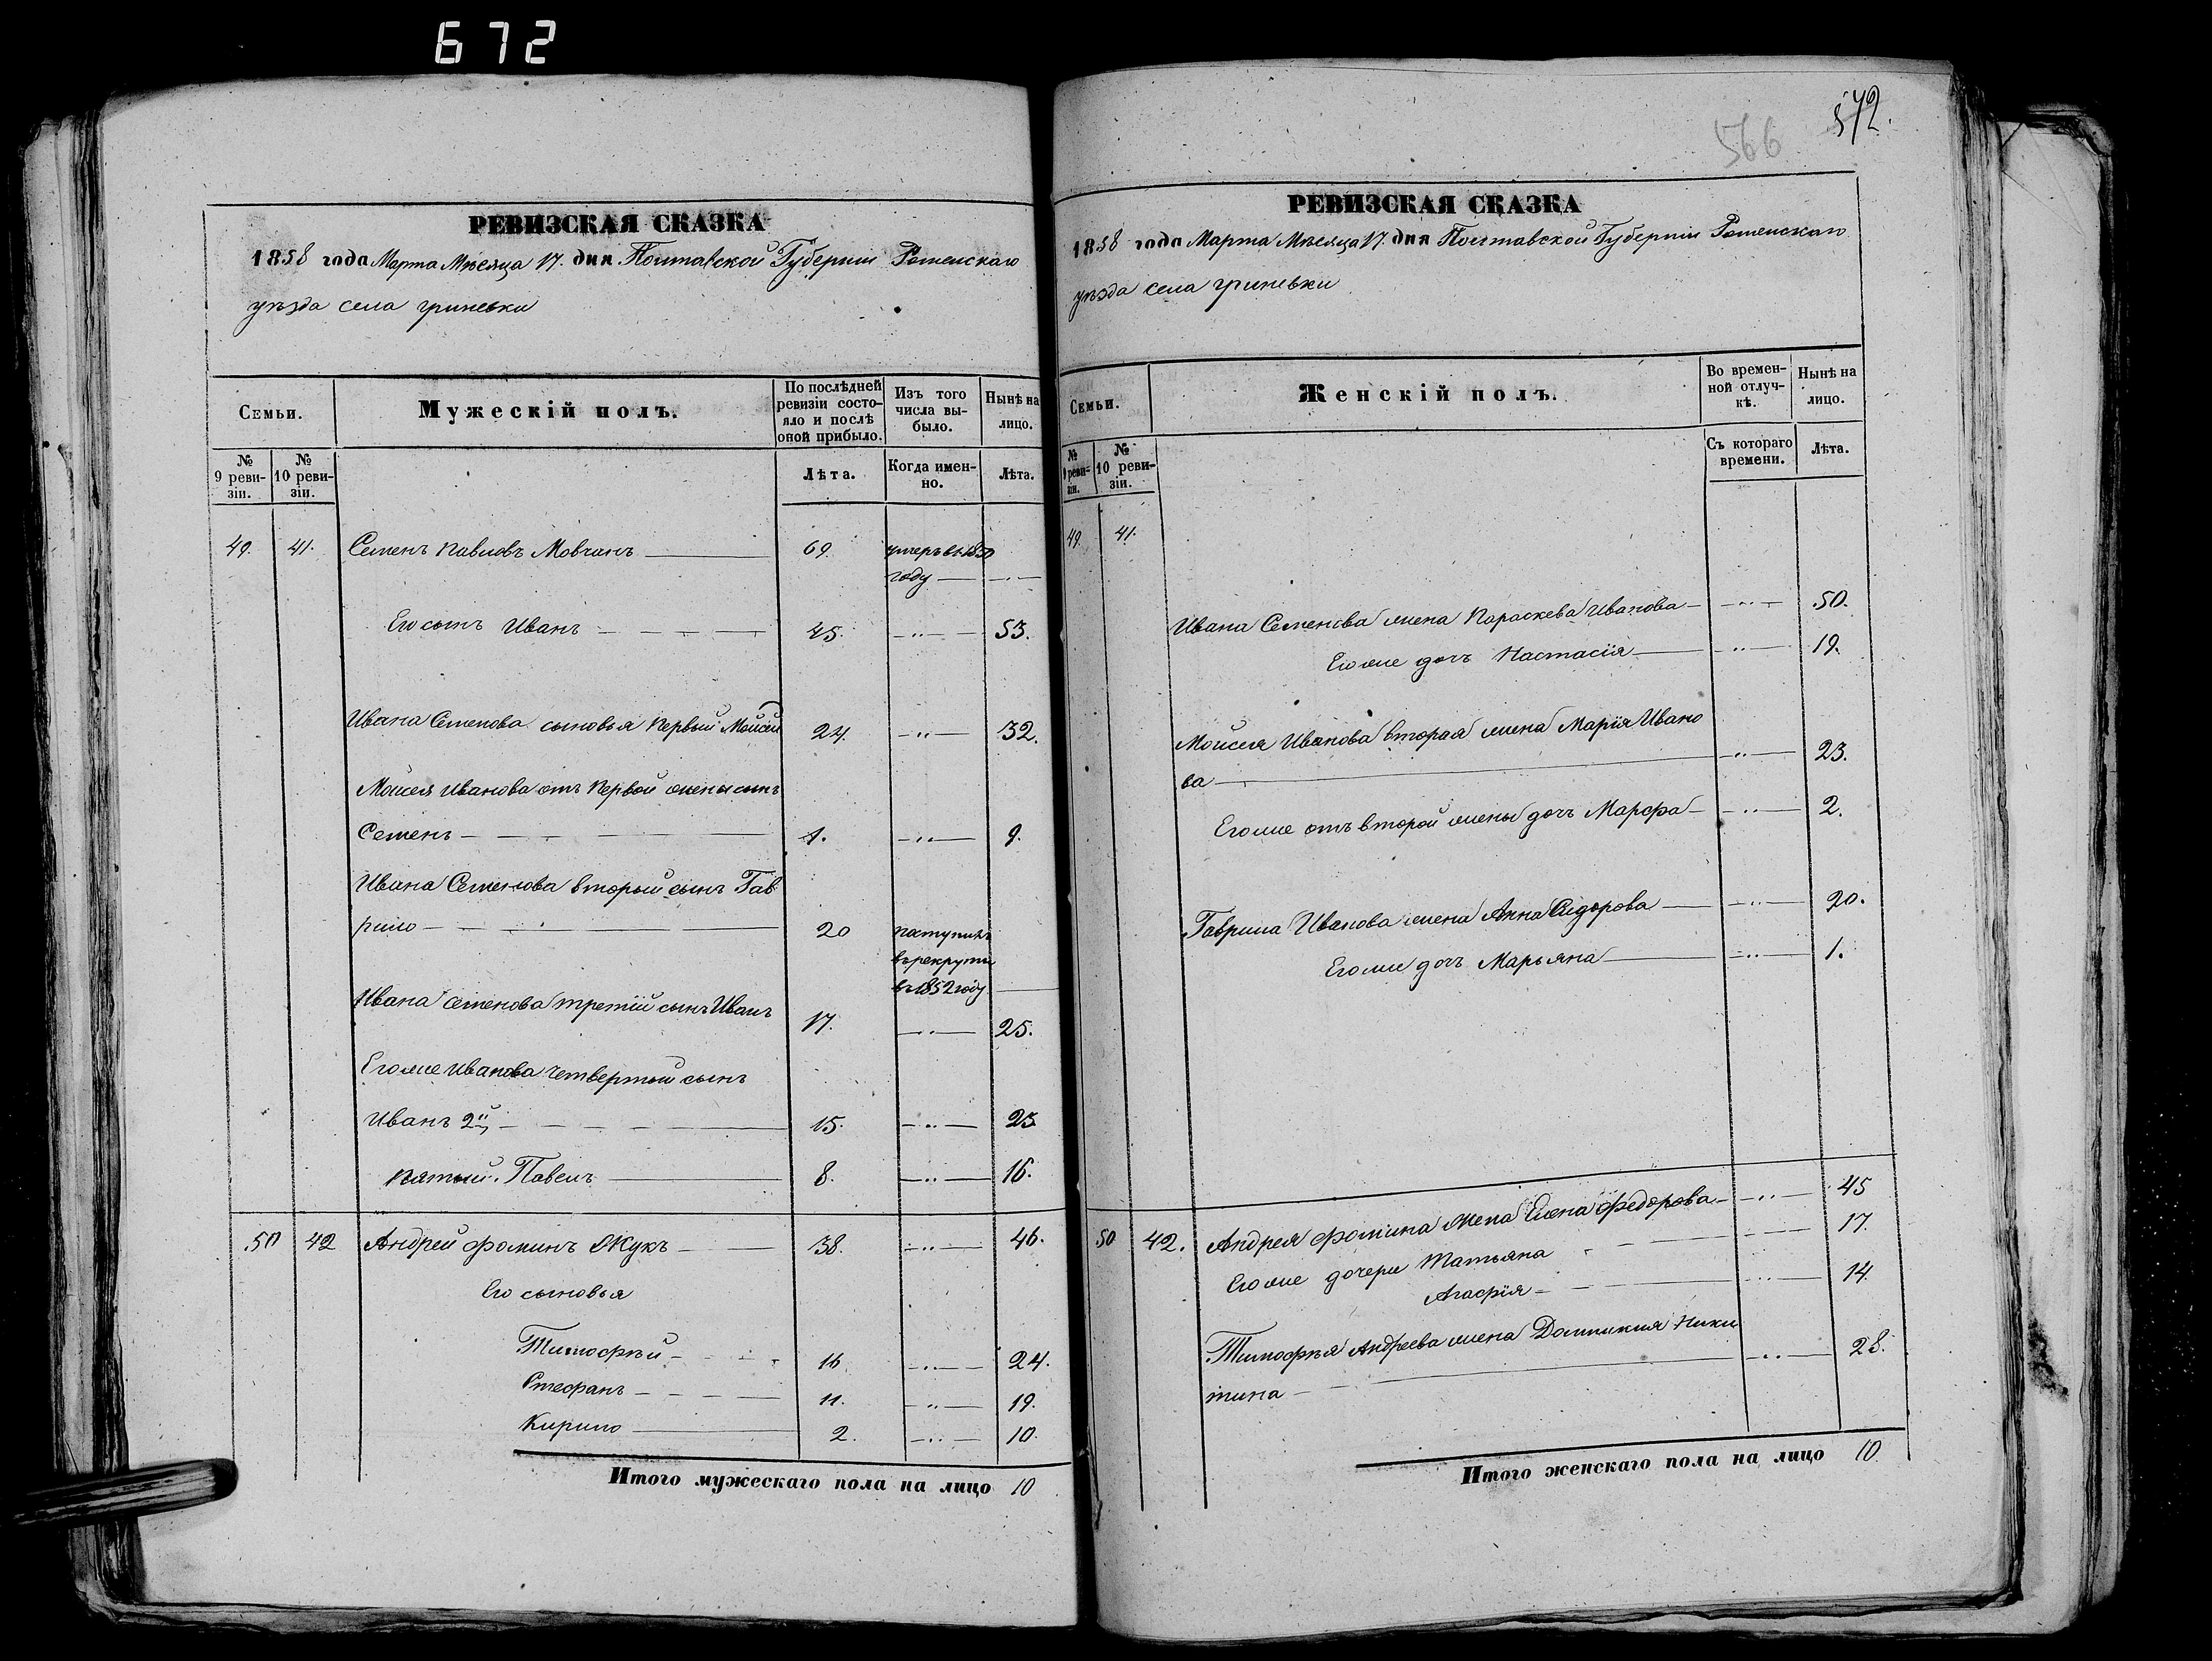 672
РЕВИЗСКАЯ СКАЗКА
1858 года Марта Мѣсяца 17. дня Полтавской Губерніи Роменскаго
уѣзда села гриневки
Семьи.
Мужескій полъ.
По послѣдней ревизіи состояло и послѣ оной прибыло.
Изъ того числа выбыло.
Нынѣ на лицо.
№ 9 ревизіи.
№ 10 ревизіи.
Лѣта.
Когда именно.
Лѣта.
49. 41. Семенъ павловъ Мовчанъ 69. умеръ въ 1850
году
Его сынъ Иванъ 45. 53.
Ивана Семенова сыновья первый Мойсей 24. 32.
Мойсея Иванова отъ первой жены сынъ
Семенъ 1. 9.
Ивана Семенова вторый сынъ Гав
рило 20 паступилъ
въ рекруты
въ 1852 году
Ивана семенова третій сынъ Иванъ 17. 25.
Его же Иванова четвертый сынъ
Иванъ 2й 15. 23
пятый. Павелъ 8. 16.
50 42 Андрей фоминъ Жукъ 38. 46.
Его сыновья
Тимофѣй 16 24.
Стефанъ 11. 19.
Кирило 2. 10.
Итого мужескаго пола на лицо 10
572.
566
РЕВИЗСКАЯ СКАЗКА
1858 года Марта Мѣсяца 17. дня Полтавской Губерніи Роменскаго
уѣзда села гриневки
Семьи.
Женскій полъ.
Во временной отлучкѣ.
Нынѣ на лицо.
№ 9 ревизіи.
№ 10 ревизіи.
Съ котораго времени.
Лѣта.
49. 41.
Ивана Семенова жена Параскева Иванова 50.
Его же дочь Настасія 19.
Мойсея Иванова вторая жена Марія Ивано
ва 23.
Его же отъ второй жены дочь Марфа 2.
Гаврила Иванова жена Анна Сидорова 20.
Его же дочь Марьяна 1.
50 42. Андрея фомина Жена Елена федорова 45
Его же дочери Татьяна 17.
Агафія 14.
Тимофѣя Андреева жена Домникия Ники
тина 28.
Итого женскаго пола на лицо 10.